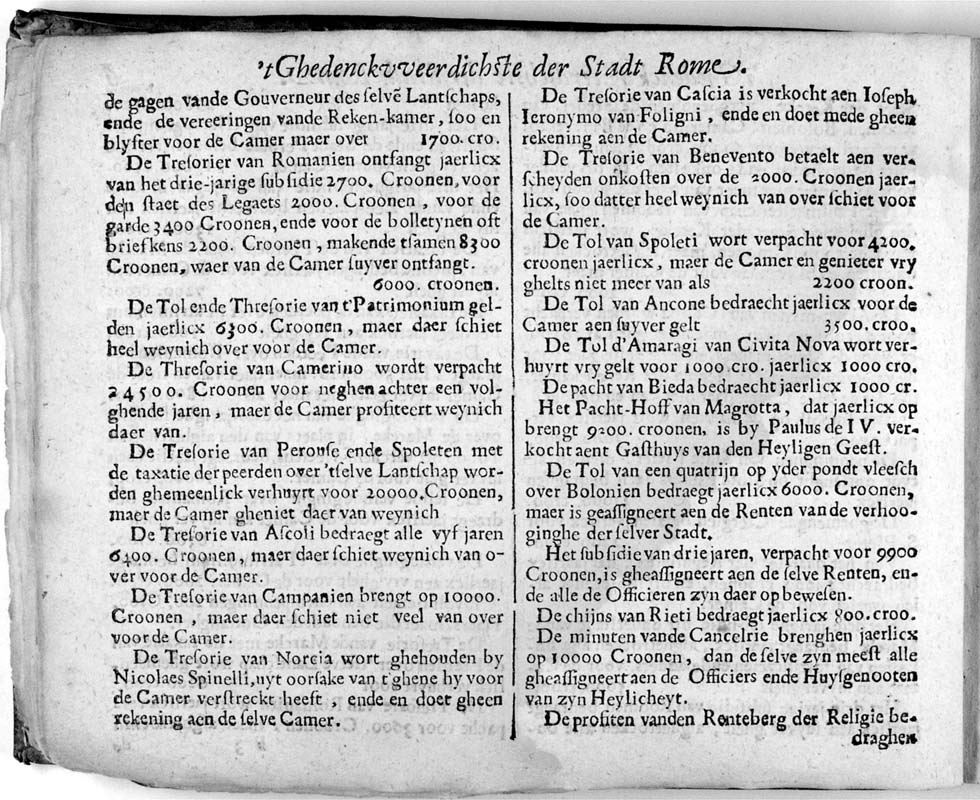 'tGhedenckvveerdichſte der Stadt Rome.
de gagen vande Gouverneur des ſelvē Lantſchaps,
ende de vereeringen vande Reken-kamer, ſoo en
blyfter voor de Camer maer over 1700. cro.
De Treſorier van Romanien ontfangt jaerlicx
van het drie-jarige ſubſidie 2700. Croonen, voor
den ſtaet des Legaets 2000. Croonen, voor de
garde 3400 Croonen, ende voor de bolletynen oft
briefkens 2200. Croonen, makende tſamen 8300
Croonen, waer van de Camer ſuyver ontfangt.
6000. croonen.
De Tol ende Threſorie van t'Patrimonium gel-
den jaerlicx 6300. Croonen, maer daer ſchiet
heel weynich over voor de Camer.
De Threſorie van Camerino wordt verpacht
24500. Croonen voor neghen achter een vol-
ghende jaren, maer de Camer profiteert weynich
daer van.
De Treſorie van Perouſe ende Spoleten met
de taxatie der peerden over 'tſelve Lantſchap wor-
den ghemeenlick verhuyrt voor 20000. Croonen,
maer de Camer gheniet daer van weynich
De Treſorie van Aſcoli bedraegt alle vyf jaren
6400. Croonen, maer daer ſchiet weynich van o-
ver voor de Camer.
De Treſorie van Campanien brengt op 10000.
Croonen, maer daer ſchiet niet veel van over
voor de Camer.
De Treſorie van Norcia wort ghehouden by
Nicolaes Spinelli, uyt oorſake van t'ghene hy voor
de Camer verſtreckt heeft, ende en doet gheen
rekening aen de ſelve Camer.
De Treſorie van Caſcia is verkocht aen Ioſeph
Ieronymo van Foligni, ende en doet mede gheen
rekening aen de Camer.
De Treſorie van Benevento betaelt aen ver-
ſcheyden onkoſten over de 2000. Croonen jaer-
licx, ſoo datter heel weynich van over ſchiet voor
de Camer.
De Tol van Spoleti wort verpacht voor 4200.
croonen jaerlicx, maer de Camer en genieter vry
ghelts niet meer van als 2200 croon.
De Tol van Ancone bedraecht jaerlicx voor de
Camer aen ſuyver gelt 3500. croo.
De Tol d'Amaragi van Civita Nova wort ver-
huyrt vry gelt voor 1000 cro. jaerlicx 1000 cro.
De pacht van Bieda bedraecht jaerlicx 1000 cr.
Het Pacht-Hoff van Magrotta, dat jaerlicx op
brengt 9200. croonen, is by Paulus de IV. ver-
kocht aent Gaſthuys van den Heyligen Geeſt.
De Tol van een quatrijn op yder pondt vleeſch
over Bolonien bedraegt jaerlicx 6000. Croonen,
maer is geaſſigneert aen de Renten van de verhoo-
ginghe der ſelver Stadt.
Het ſubſidie van drie jaren, verpacht voor 9900
Croonen, is gheaſſigneert aen de ſelve Renten, en-
de alle de Officieren zyn daer op beweſen.
De chijns van Rieti bedraegt jaerlicx 800. croo.
De minuten vande Cancelrie brenghen jaerlicx
op 10000 Croonen, dan de ſelve zyn meeſt alle
gheaſſigneert aen de Officiers ende Huyſgenooten
van zyn Heylicheyt.
De profiten vanden Renteberg der Religie be-
draghen